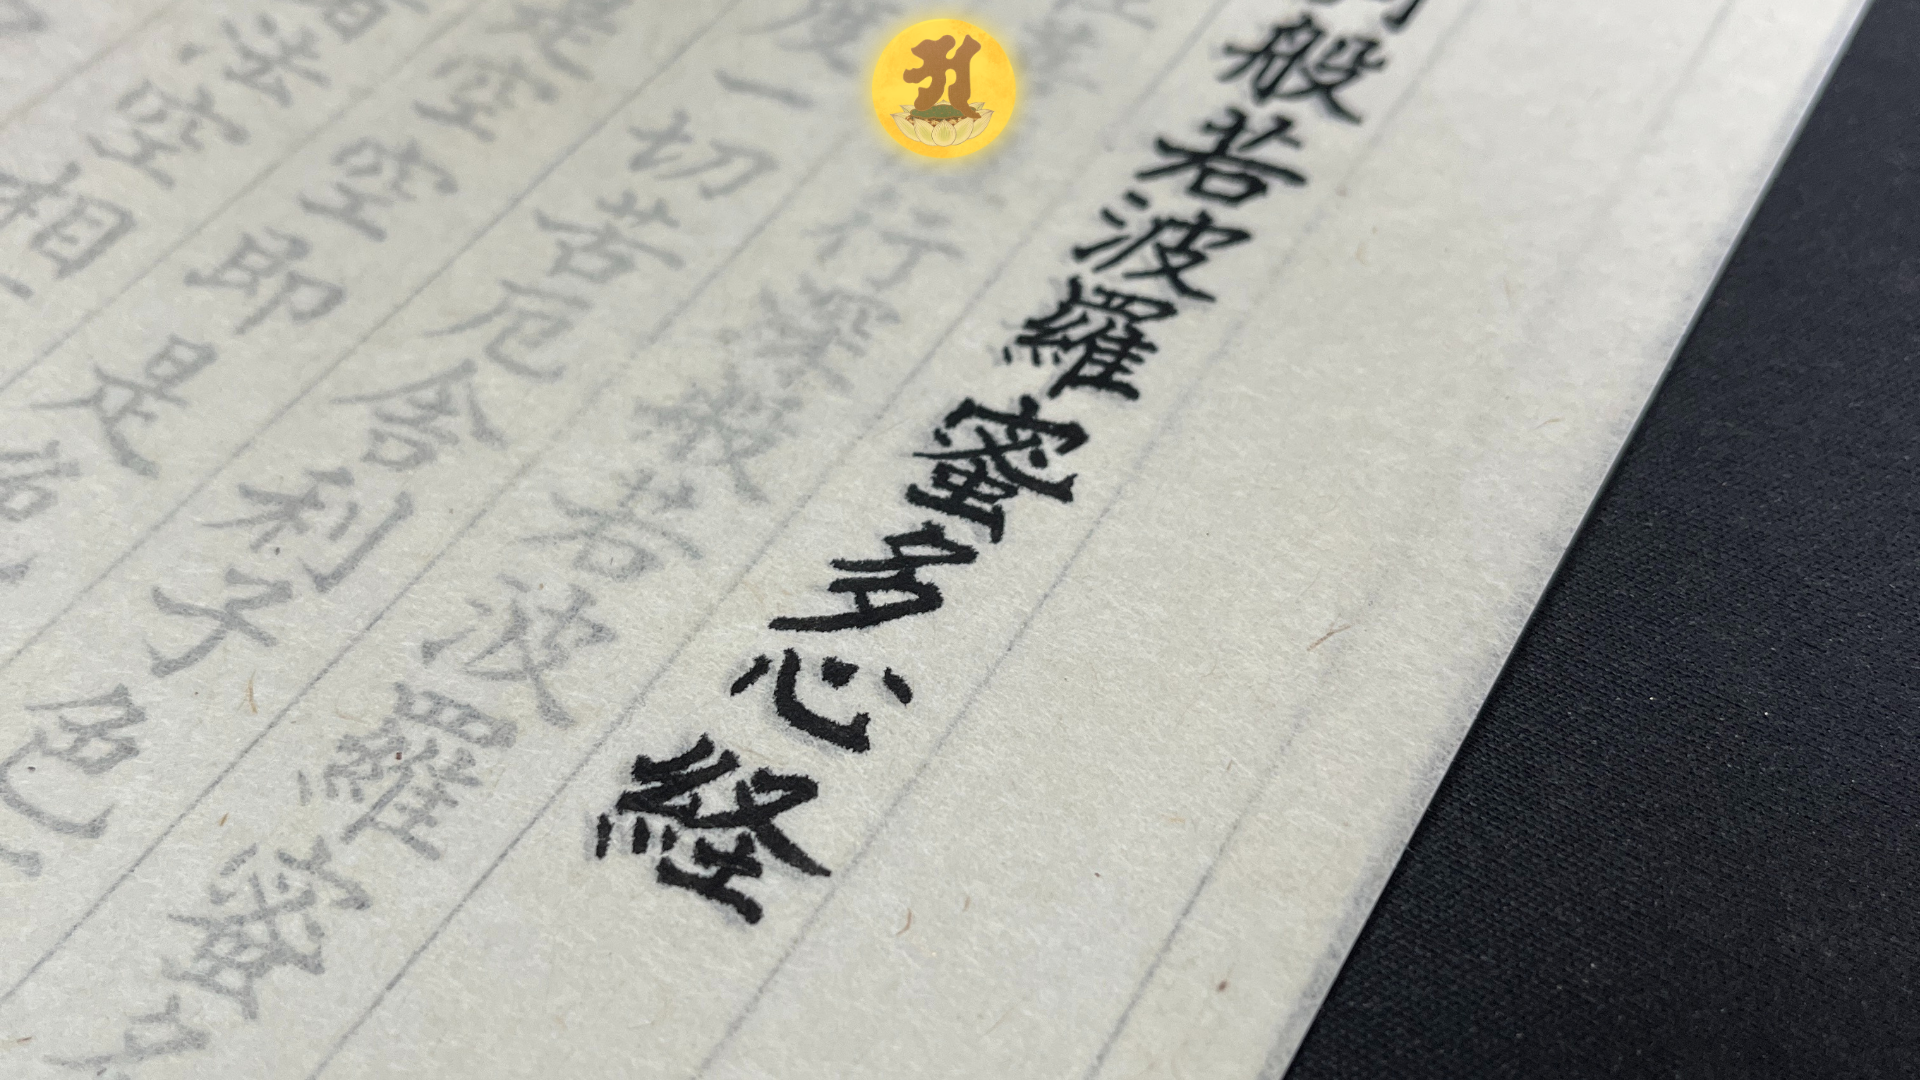 般若波羅蜜多心経
行深般若波羅蜜多
度一切苦厄舍利子色
是空空即是色
法空相